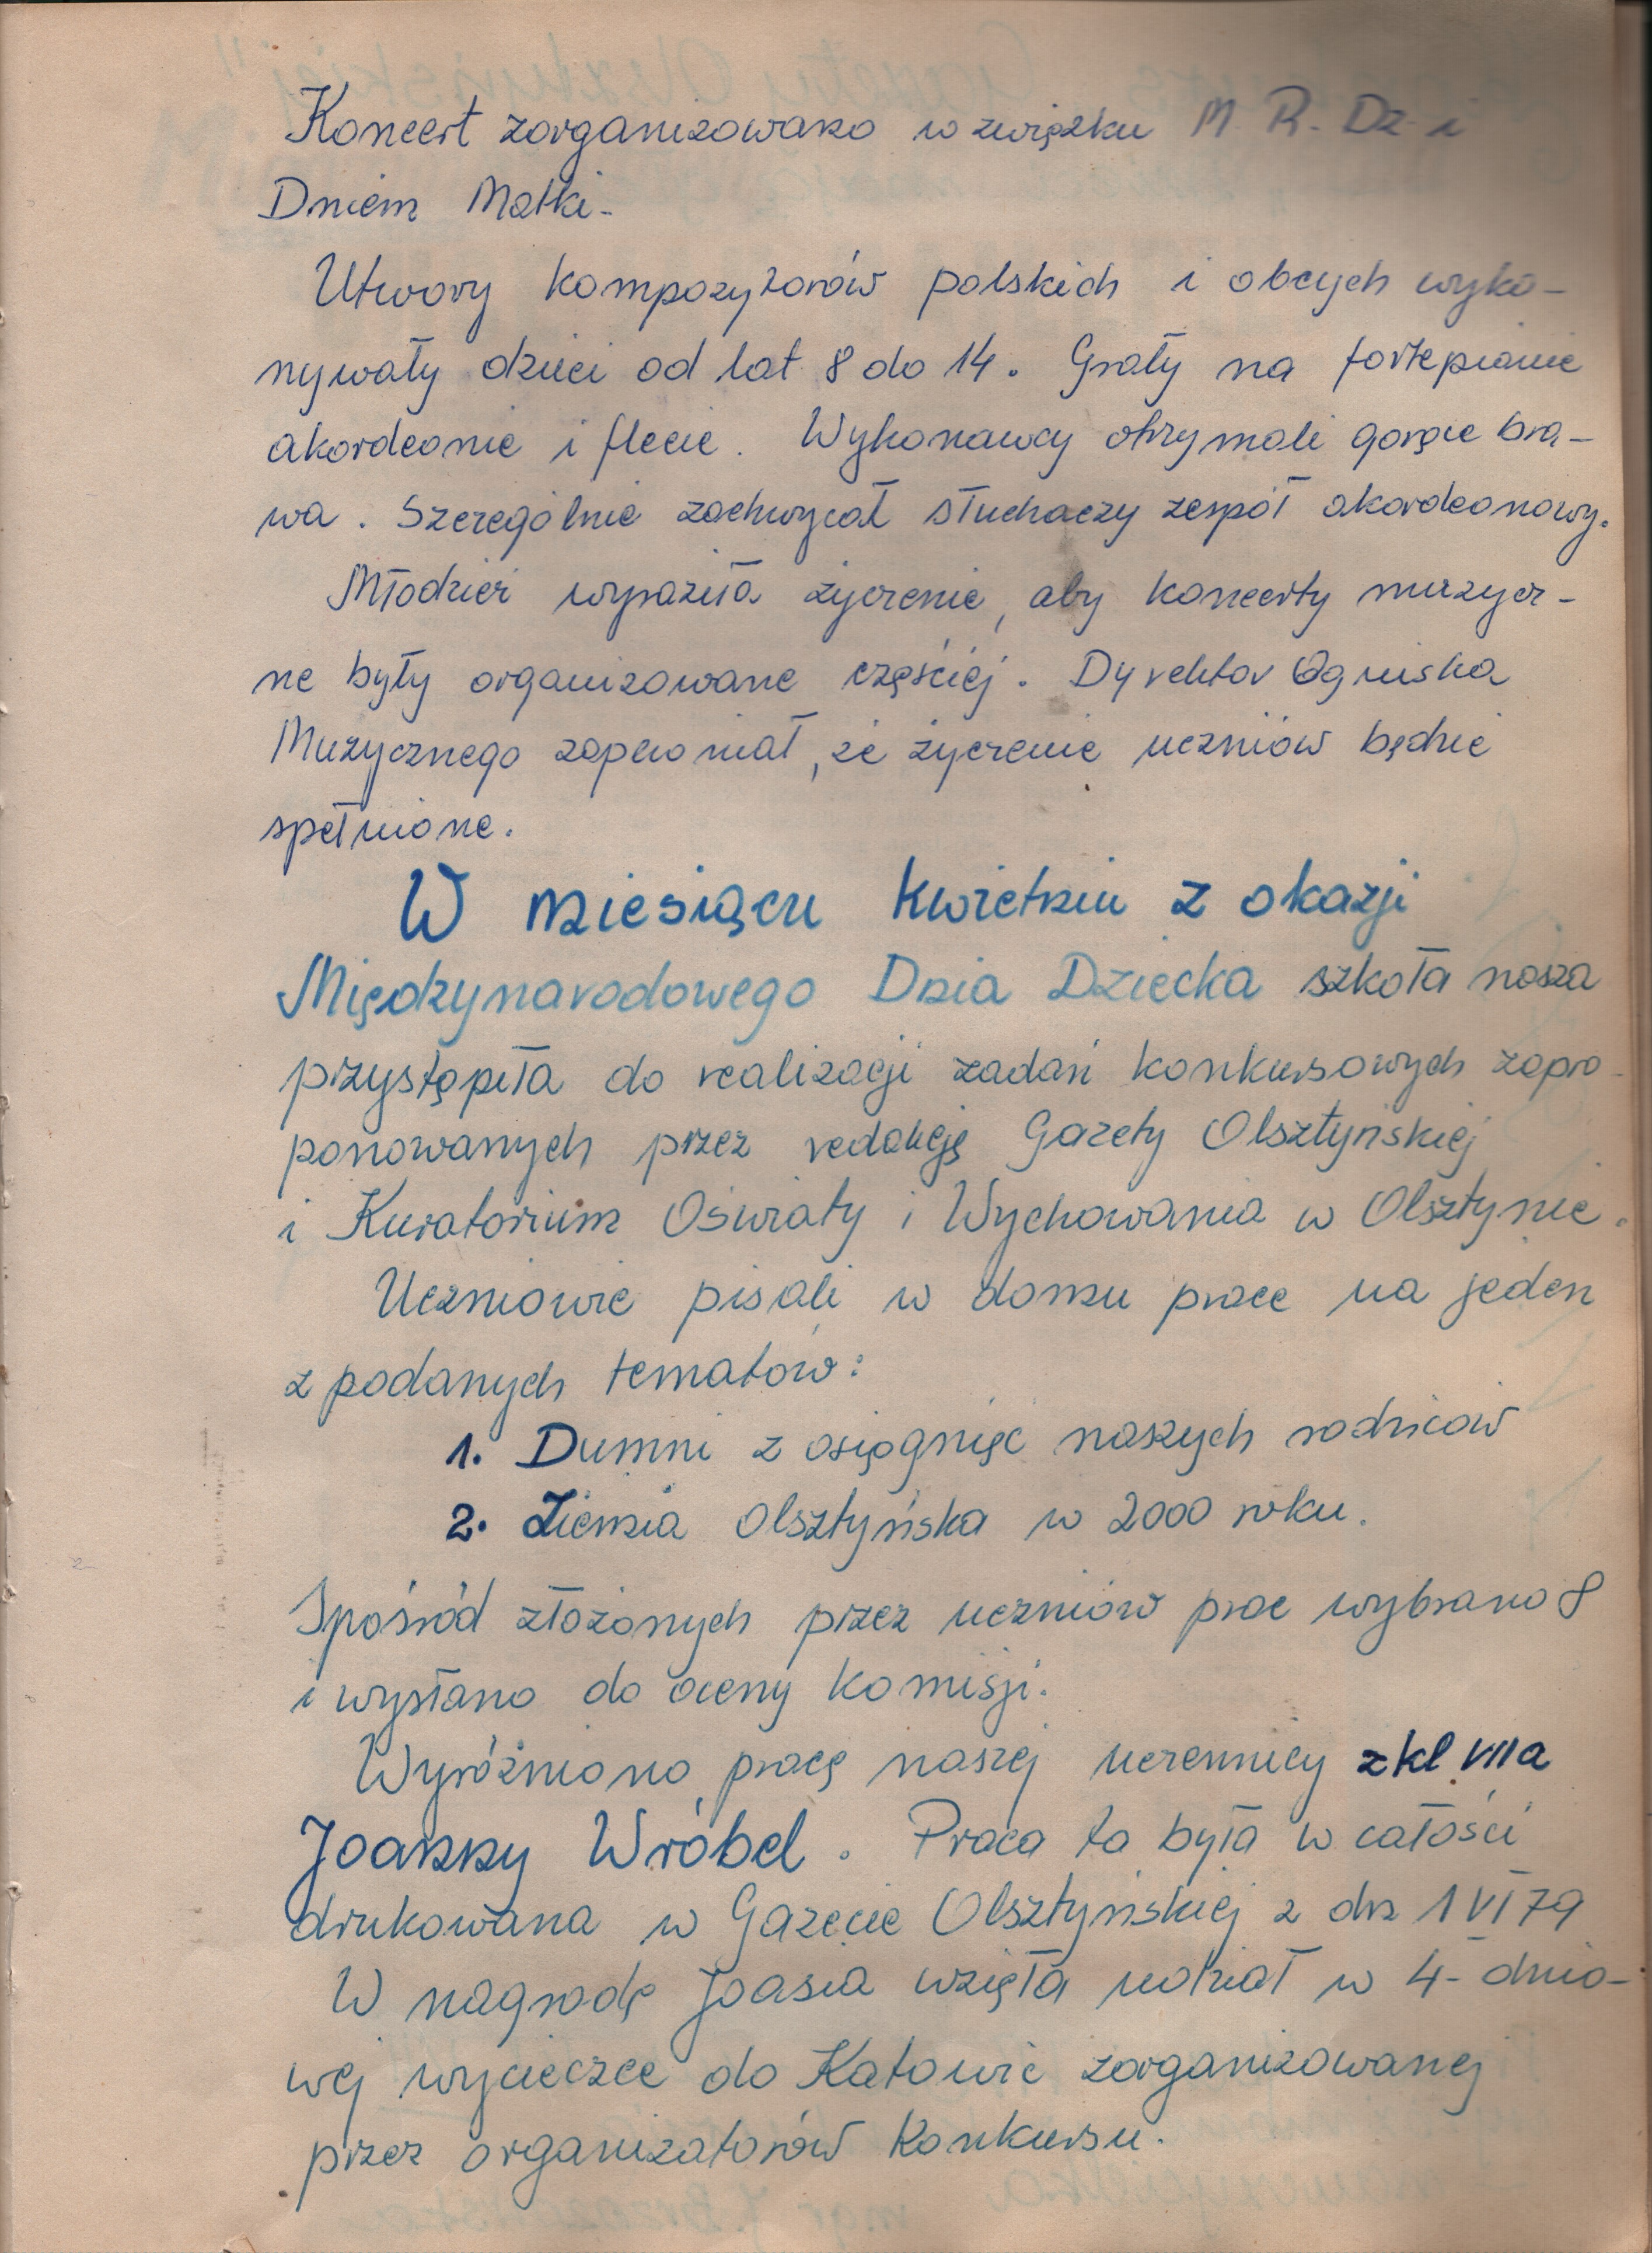 Koncert zorganizowano w związku M. R. Dz i
Dniem Matki.
Utwory kompozytorów polskich i obcych wyko-
nywały dzieci od lat 8 do 14. Grały na fortepianie
akordeonie i flecie. Wykonawcy otrzymali gorące bra-
wa. Szczególnie zachwycał słuchaczy zespół akordeonowy.
Młodzież wyraziła życzenie, aby koncerty muzycz-
ne były organizowane częściej. Dyrektor Ogniska
Muzycznego zapewniał, że życzenie uczniów będzie
spełnione.
W miesiącu kwietniu z okazji
Międzynarodowego Dnia Dziecka szkoła nasza
przystąpiła do realizacji zadań konkursowych zapro-
ponowanych przez redakcję Gazety Olsztyńskiej
i Kuratorium Oświaty i Wychowania w Olsztynie.
Uczniowie pisali w domu prace na jeden
z podanych tematów:
1. Dumni z osiągnięć naszych rodziców
2. Ziemia Olsztyńska w 2000 roku.
Spośród złożonych przez uczniów prac wybrano 8
i wysłano do oceny komisji.
Wyróżniono pracę naszej uczennicy z kl VIIa
Joanny Wróbel. Praca ta była w całości
drukowana w Gazecie Olsztyńskiej z dn 1 VI 79
W nagrodę Joasia wzięła udział w 4-dnio-
wej wycieczce do Katowic zorganizowanej
przez organizatorów Konkursu.